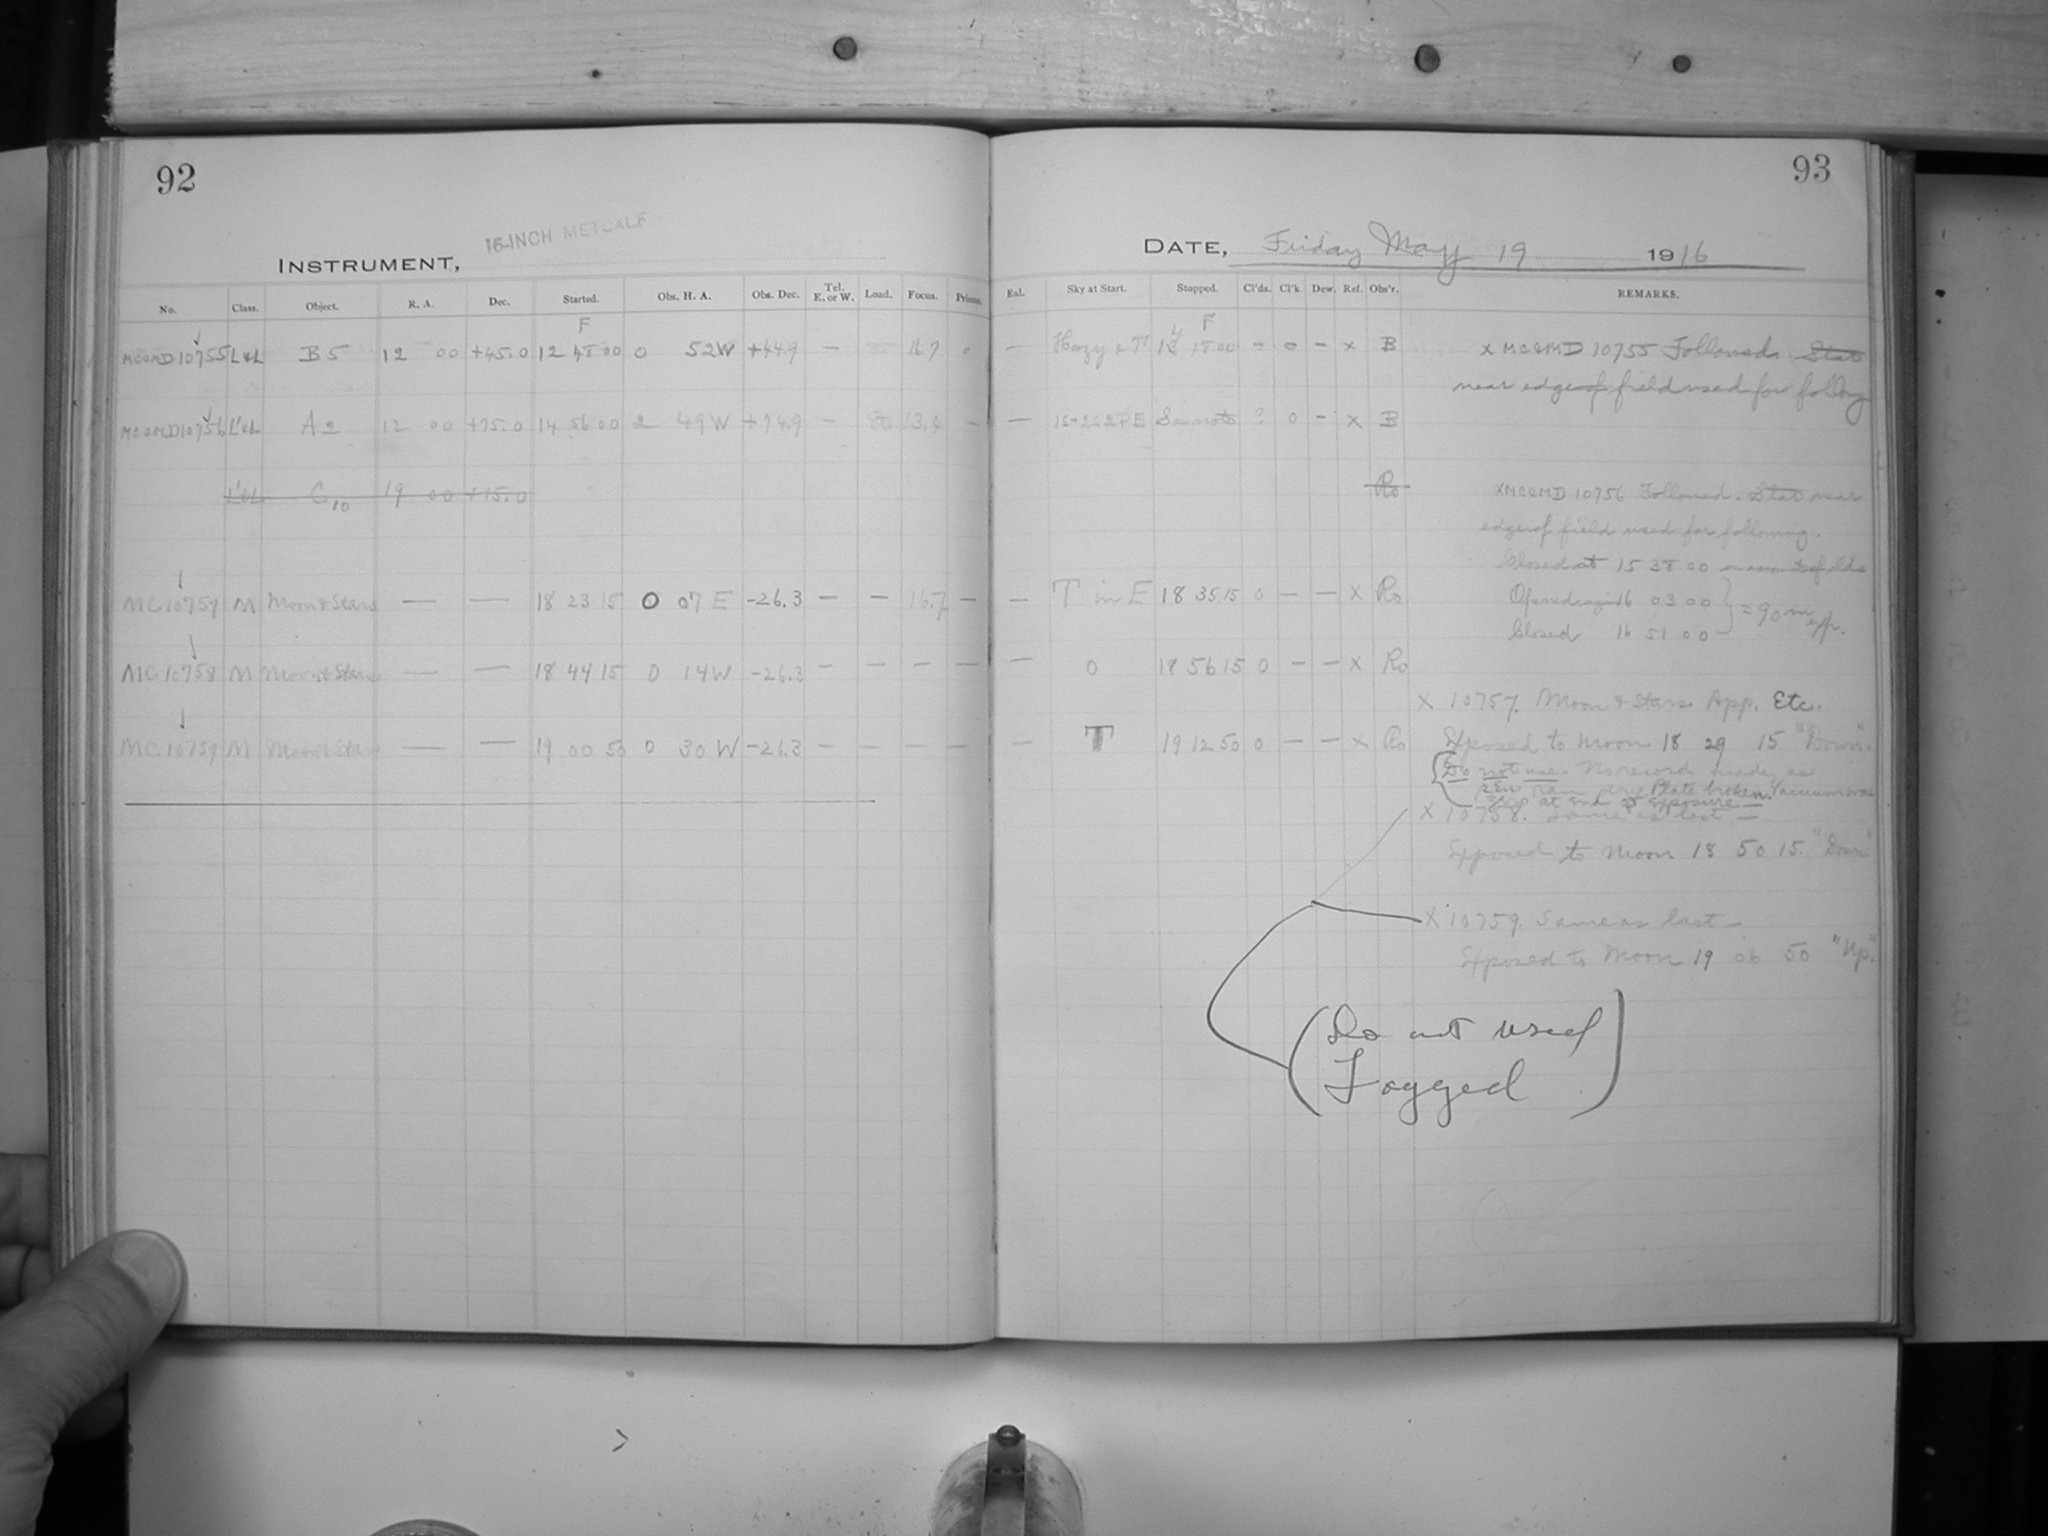 92
16-INCH METCALF
INSTRUMENT,
No. Class. Object. R. A. Dec. Started. Obs. H. A. Obs. Dec. Tel. E. or W. Load. Focus. Prisms.
F
MC&MD10755 L&L B5 12 00 +45.0 12 48 00 0 52W +44.9 — 16.7 0
MC&MD10756 L&L A2 12 00 +75.0 14 56 00 2 49W +74.9 — 80 13.4 —
L&L C10 19 00 +15.0
MC10757 M Moon & Stars — — 18 23 15 0 07 E -26.3 — — 16.7 —
MC10758 M Moon & Stars — — 18 44 15 0 14W -26.3 — — — —
MC10759 M Moon & Stars — — 19 00 50 0 30 W -26.3 — — — —
93
DATE, Friday May 19 1916
Enl. Sky at Start. Stopped. Cl'ds. Cl'k. Dew. Ref. Obs'r. REMARKS.
F
— Hazy & T 18 00 — 0 — x B
— ? 0 — x B
Ro
— T in E 18 35 15 0 — — x Ro
— 0 18 56 15 0 — — x Ro
— T 19 12 50 0 — — x Ro
x MC&MD 10755 Followed. Star
near edge of field used for following
x MC&MD 10756 Followed. Star near
edge of field used for following.
Closed at 15 38 00 on account of clds
Opened again 16 03 00
Closed 16 51 00
= 90 m exp.
X 10757. Moon & Stars App. Etc.
Exposed to Moon 18 29 15 "Down".
Do not use. No record made as
pen ran dry. Plate broken. Vacuum was
zero at end of exposure —
X 10758. Same as last —
Exposed to Moon 18 50 15. "Down"
X 10759. Same as last —
Exposed to Moon 19 06 50 "Up."
(Do not used
Fogged)